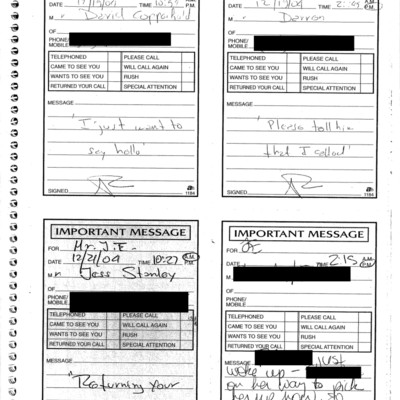 DATE 12/15/04 TIME 10:55 P.M.
M. David Copperfield
OF
PHONE/
MOBILE
TELEPHONED PLEASE CALL
CAME TO SEE YOU WILL CALL AGAIN
WANTS TO SEE YOU RUSH
RETURNED YOUR CALL SPECIAL ATTENTION
MESSAGE
"I just want to
say hello"
SIGNED
1184
DATE TIME A.M. P.M.
M. Darren
OF
PHONE/
MOBILE
TELEPHONED PLEASE CALL
CAME TO SEE YOU WILL CALL AGAIN
WANTS TO SEE YOU RUSH
RETURNED YOUR CALL SPECIAL ATTENTION
MESSAGE
"Please tell him
that I called"
SIGNED
1184
IMPORTANT MESSAGE
FOR Mr. J.E.
DATE 12/21/04 TIME 10:27 A.M. P.M.
M. Jess Stanley
OF
PHONE/
MOBILE
TELEPHONED PLEASE CALL
CAME TO SEE YOU WILL CALL AGAIN
WANTS TO SEE YOU RUSH
RETURNED YOUR CALL SPECIAL ATTENTION
MESSAGE
"Returning your
IMPORTANT MESSAGE
FOR JE
DATE TIME 2:15 A.M. P.M.
M
OF
PHONE/
MOBILE
TELEPHONED PLEASE CALL
CAME TO SEE YOU WILL CALL AGAIN
WANTS TO SEE YOU RUSH
RETURNED YOUR CALL SPECIAL ATTENTION
MESSAGE Just
woke up -
on her way to pick
her up now. So